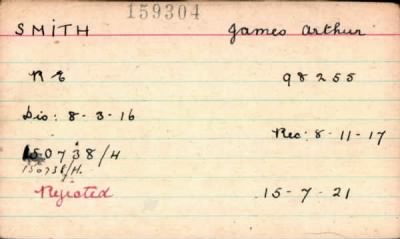 159304
SMITH James Arthur
R E 98255
Dis: 8-3-16
Rec: 8-11-17
150738/H
150738/H.
Rejected 15-7-21